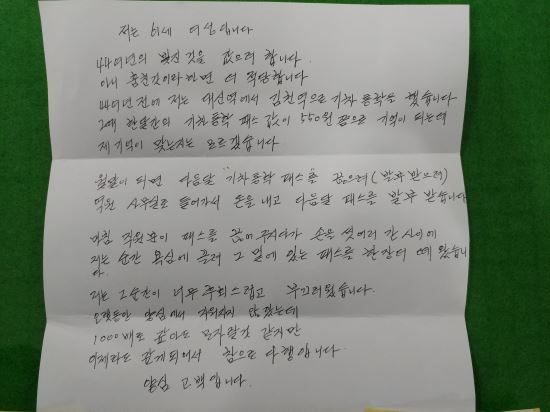 저는 61세 여성입니다
44여년의 빚진 것을 갚으려 합니다.
아니 훔친것이라하면 더 적당합니다
44여년전에 저는 대신역에서 김천역으로 기차 통학을 했습니다
그때 한달간의 기차통학 패스 값이 550원 쯤으로 기억이 되는데
제 기억이 맞는지는 모르겠습니다
월말이 되면 다음달 "기차통학 패스"를 끊으려 (발급 받으려)
역원 사무실로 들어가서 돈을 내고 다음달 패스를 발급 받습니다
마침 직원분이 패스를 끊어 주시다가 손을 씻으러 간 사이에
저는 순간 욕심에 끌려 그 옆에 있는 패스를 한장 더 떼 왔습니
다.
저는 그순간이 너무 후회스럽고 부끄러웠습니다.
오랫동안 양심에서 지워지지 않았는데
1000배로 갚아도 모자랄것 같지만
이제라도 갚게되어서 참으로 다행입니다.
양심 고백입니다.